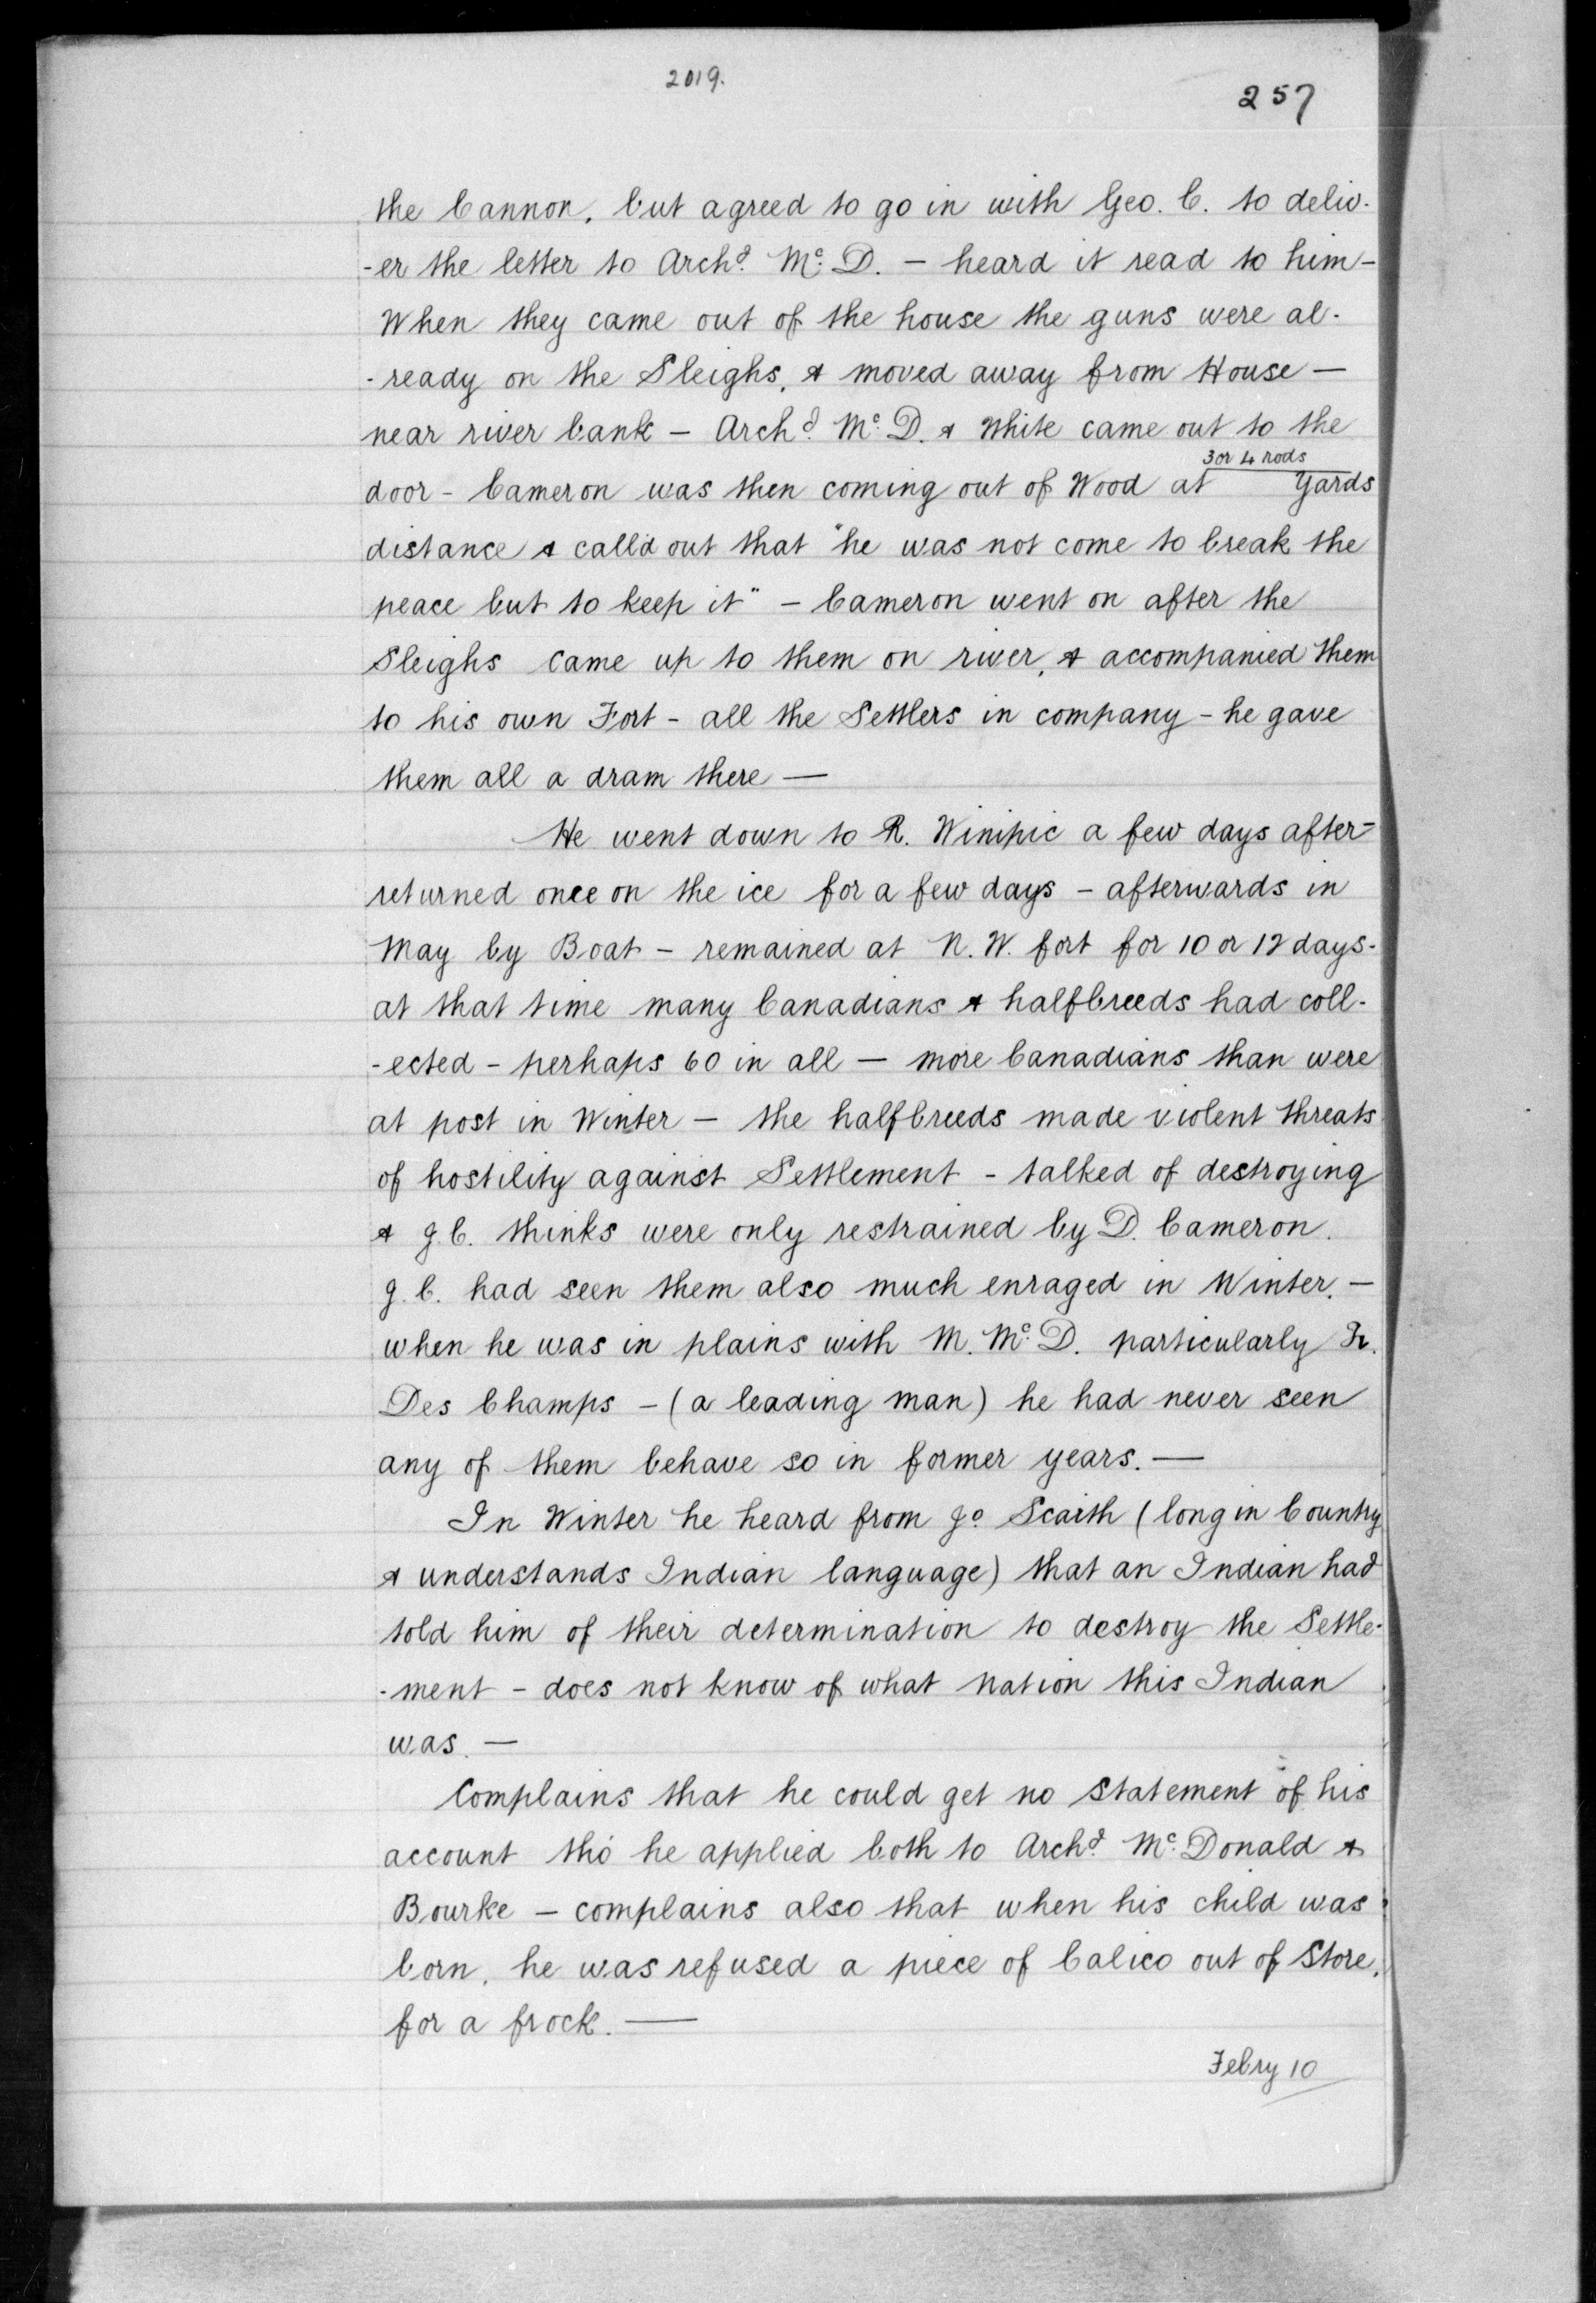 2019.
257
the Cannon, but agreed to go in with Geo. C. to deliv-
-er the letter to Archd. Mc. D. - heard it read to him -
When they came out of the house the guns were al-
-ready on the Sleighs, & moved away from House —
near river bank - Archd. Mc. D. & White came out to the
3 or 4 rods
door - Cameron was then coming out of Wood at yards
distance & call'd out that "he was not come to break the
peace but to keep it" - Cameron went on after the
Sleighs came up to them on river, & accompanied them
to his own Fort - all the Settlers in company - he gave
them all a dram there —
He went down to R. Winipic a few days after -
returned once on the ice for a few days - afterwards in
May by Boat - remained at N. W. fort for 10 or 12 days -
at that time many Canadians & halfbreeds had coll-
-ected - perhaps 60 in all — more Canadians than were
at post in Winter - the halfbreeds made violent threats
of hostility against Settlement - talked of destroying
& J. C. thinks were only restrained by D. Cameron.
J. C. had seen them also much enraged in Winter, -
when he was in plains with M. Mc. D. particularly Fr.
Des Champs - (a leading man) he had never seen
any of them behave so in former years. —
In Winter he heard from Jo Scaith (long in Country
& understands Indian language) that an Indian had
told him of their determination to destroy the Settle-
-ment - does not know of what nation this Indian
was. —
Complains that he could get no Statement of his
account tho' he applied both to Archd. Mc. Donald &
Bourke - complains also that when his child was
born, he was refused a piece of Calico out of Store,
for a frock. —
Febry 10